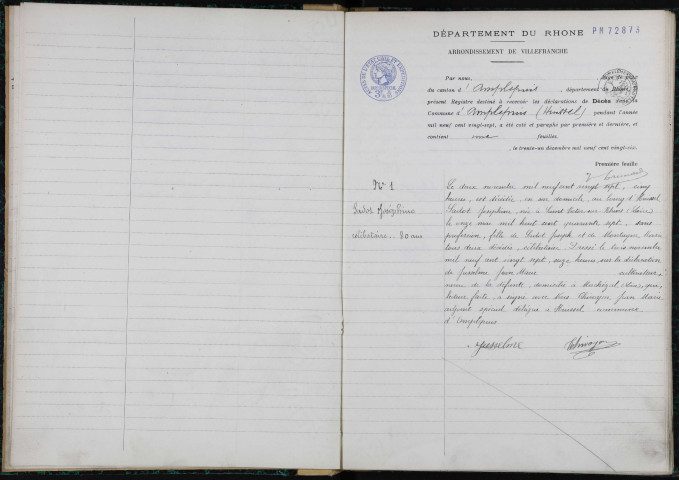 DÉPARTEMENT DU RHONE PM 72873
ARRONDISSEMENT DE VILLEFRANCHE
Par nous, Juge de
du canton d'Amplepuis, département du Rhône, le
présent Registre destiné à recevoir les déclarations de Décès dans la
Commune d'Amplepuis pendant l'année
mil neuf cent vingt-sept, a été coté et paraphé par première et dernière, et
contient une feuilles.
, le trente-un décembre mil neuf cent vingt-six.
Première feuille
N° 1
célibataire 80 ans
Le deux novembre mil neuf cent vingt sept, cinq
heures, est décédée, en son domicile, au bourg
Joséphine, née à Saint Victor sur Rhins (Loire)
le onze mai mil huit cent quarante sept, sans
profession, fille de Joseph et de
tous deux décédés, célibataire. Dressé le trois novembre
mil neuf cent vingt sept, onze heures, sur la déclaration
de Jusselme Jean Marie cultivateur
de la défunte, domicilié à (Loire), qui,
lecture faite, a signé avec Nous Jean Marie
adjoint spécial délégué à commune
d'Amplepuis
Jusselme